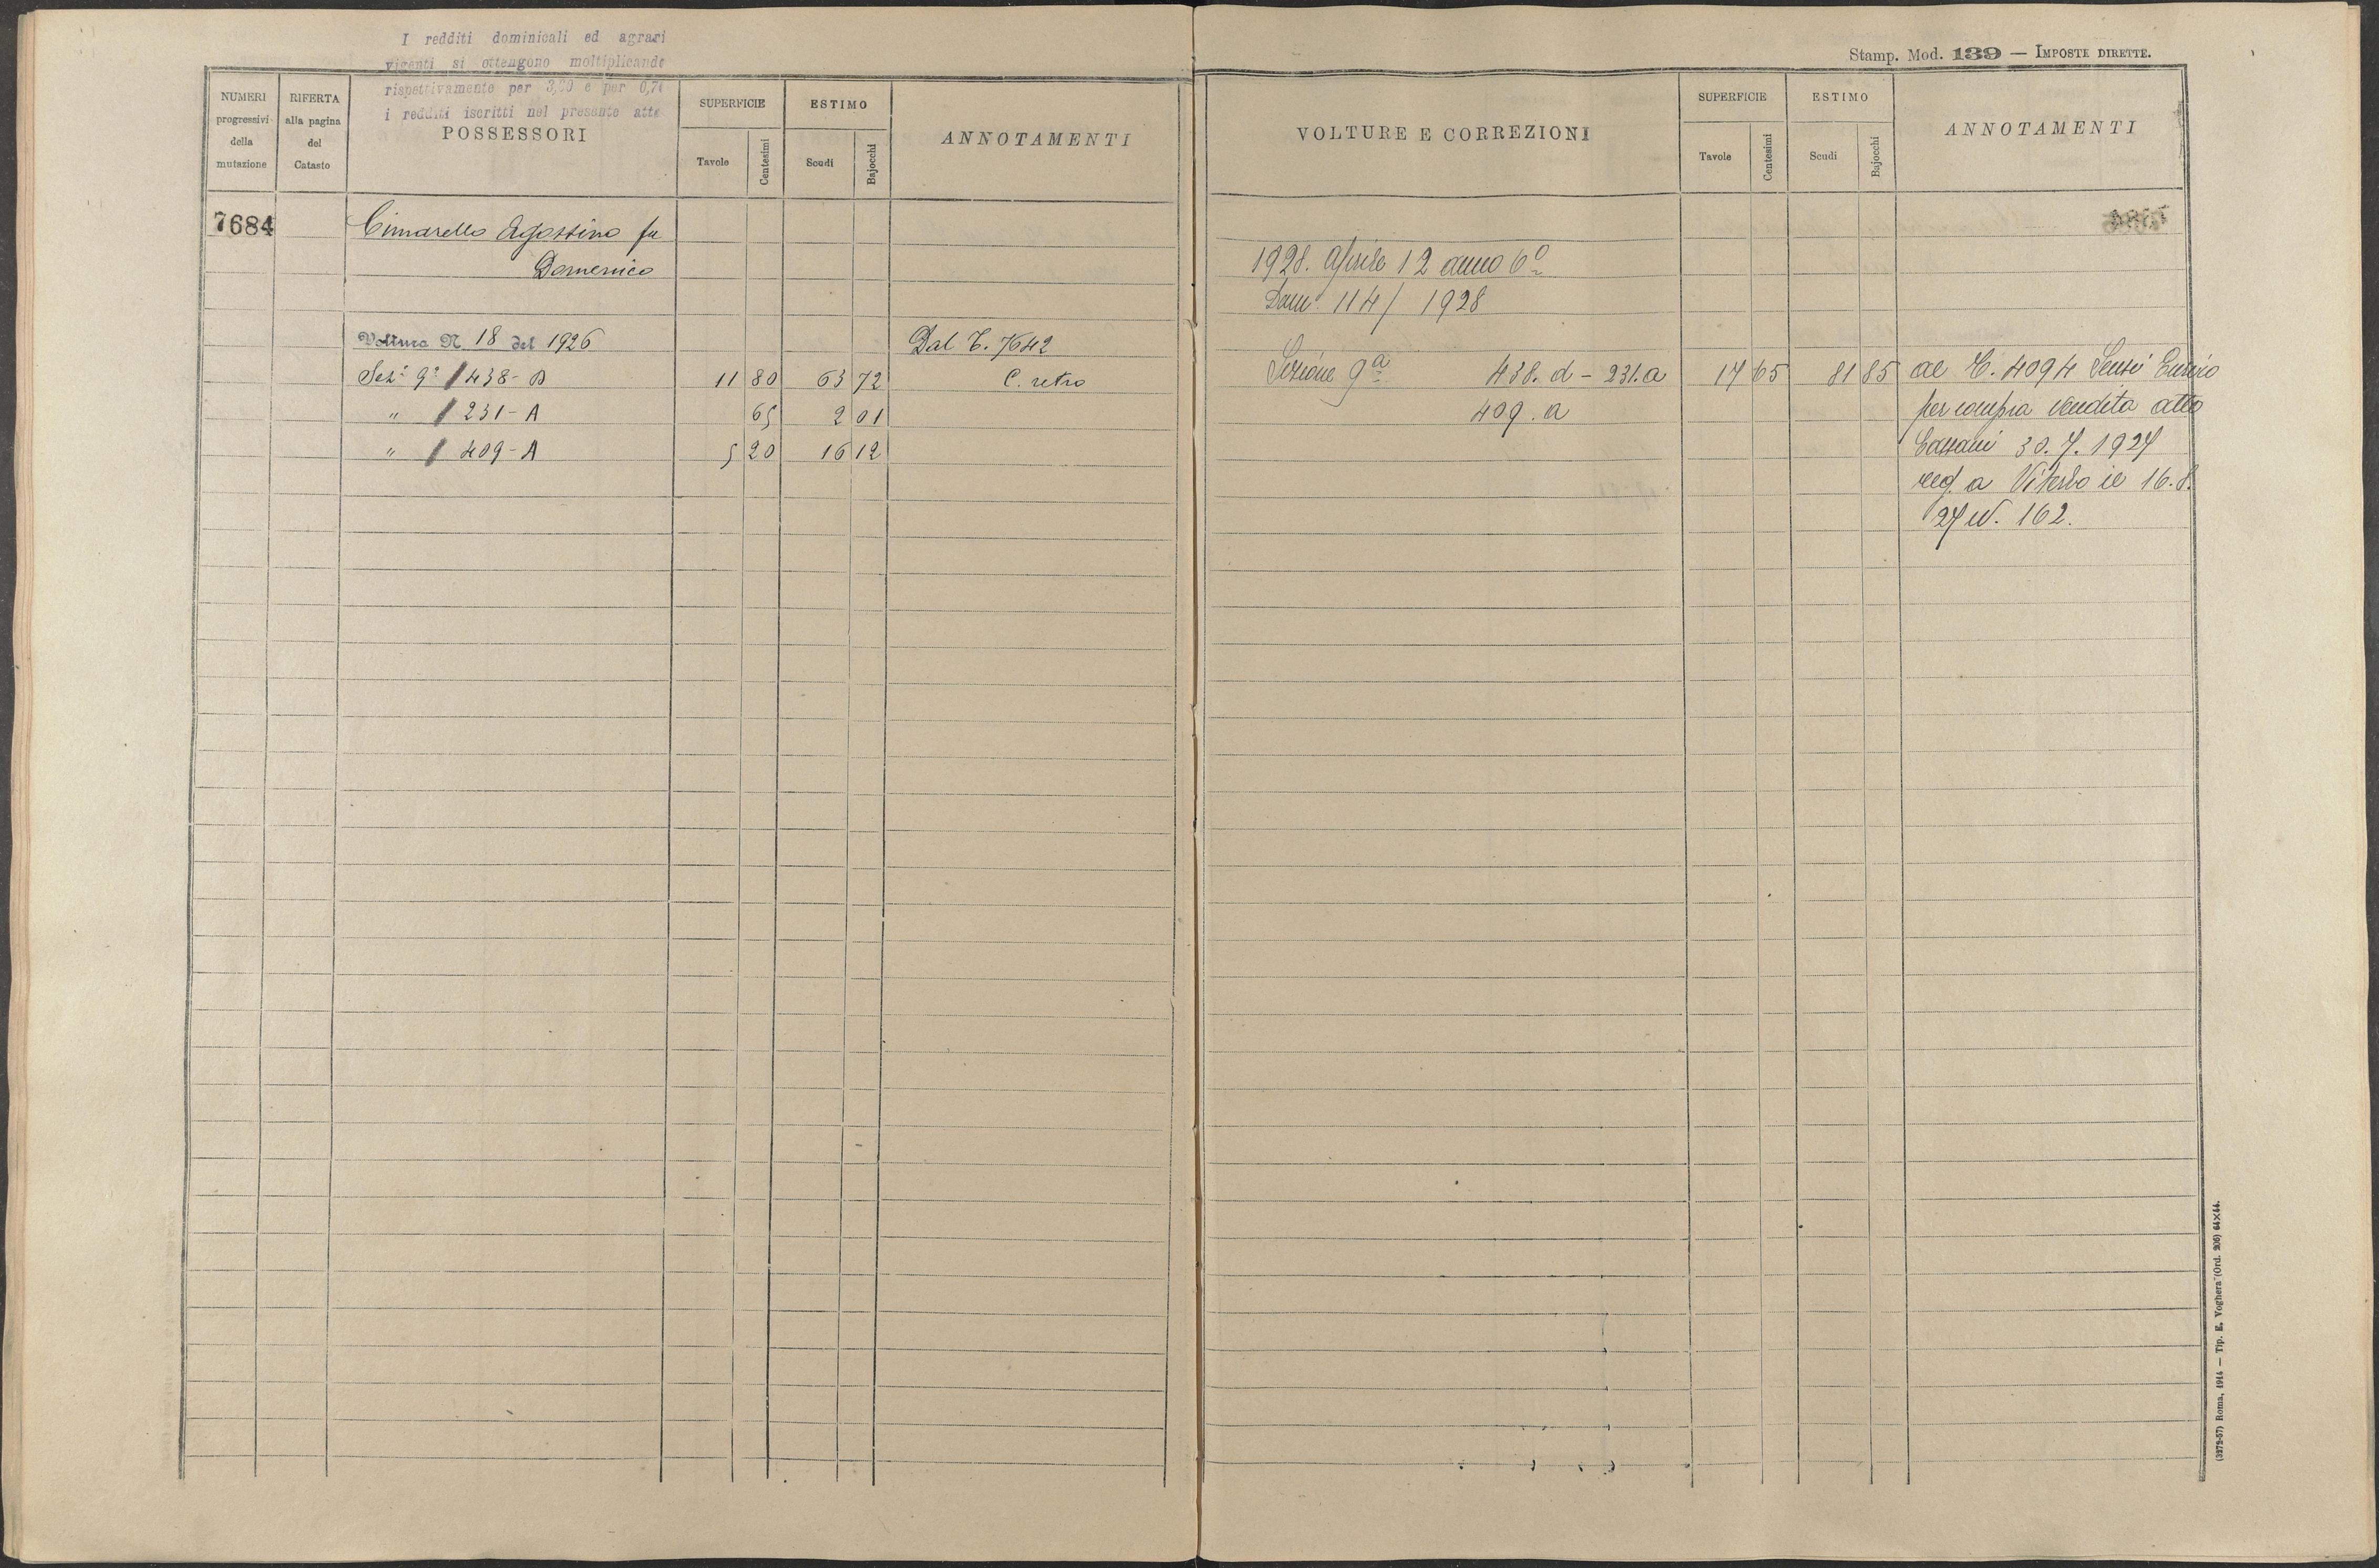 I redditi dominicali ed agrari
vigenti si ottengono moltiplicando
rispettivamente per 3,00 e per 0,7
i redditi iscritti nel presente atto
NUMERI
progressivi
della
mutazione
RIFERTA
alla pagina
del
Catasto
POSSESSORI
SUPERFICIE
Tavole
Centesimi
ESTIMO
Scudi
Bajocchi
ANNOTAMENTI
7684
Cimarello Agostino fu
Domenico
Voltura N. 18 del 1926 Dal T. 7642
Sez.e 9a 438-D 11 80 63 72 C. retro
" 231-A 65 2 01
" 409-A 5 20 16 12
Stamp. Mod. 139 — IMPOSTE DIRETTE.
VOLTURE E CORREZIONI
SUPERFICIE
Tavole
Centesimi
ESTIMO
Scudi
Bajocchi
ANNOTAMENTI
1928. Aprile 12 anno 6o
114/1928
Sezione 9a 438.d - 231.a 17 65 81 85 al T. 4094 Sensi
409.a per compra vendita atto
30.7.1927
reg. a Viterbo il 16.8.
27 N. 162.
(3272-57) Roma, 1914 — Tip. E. Voghera (Ord. 206) 64×44.